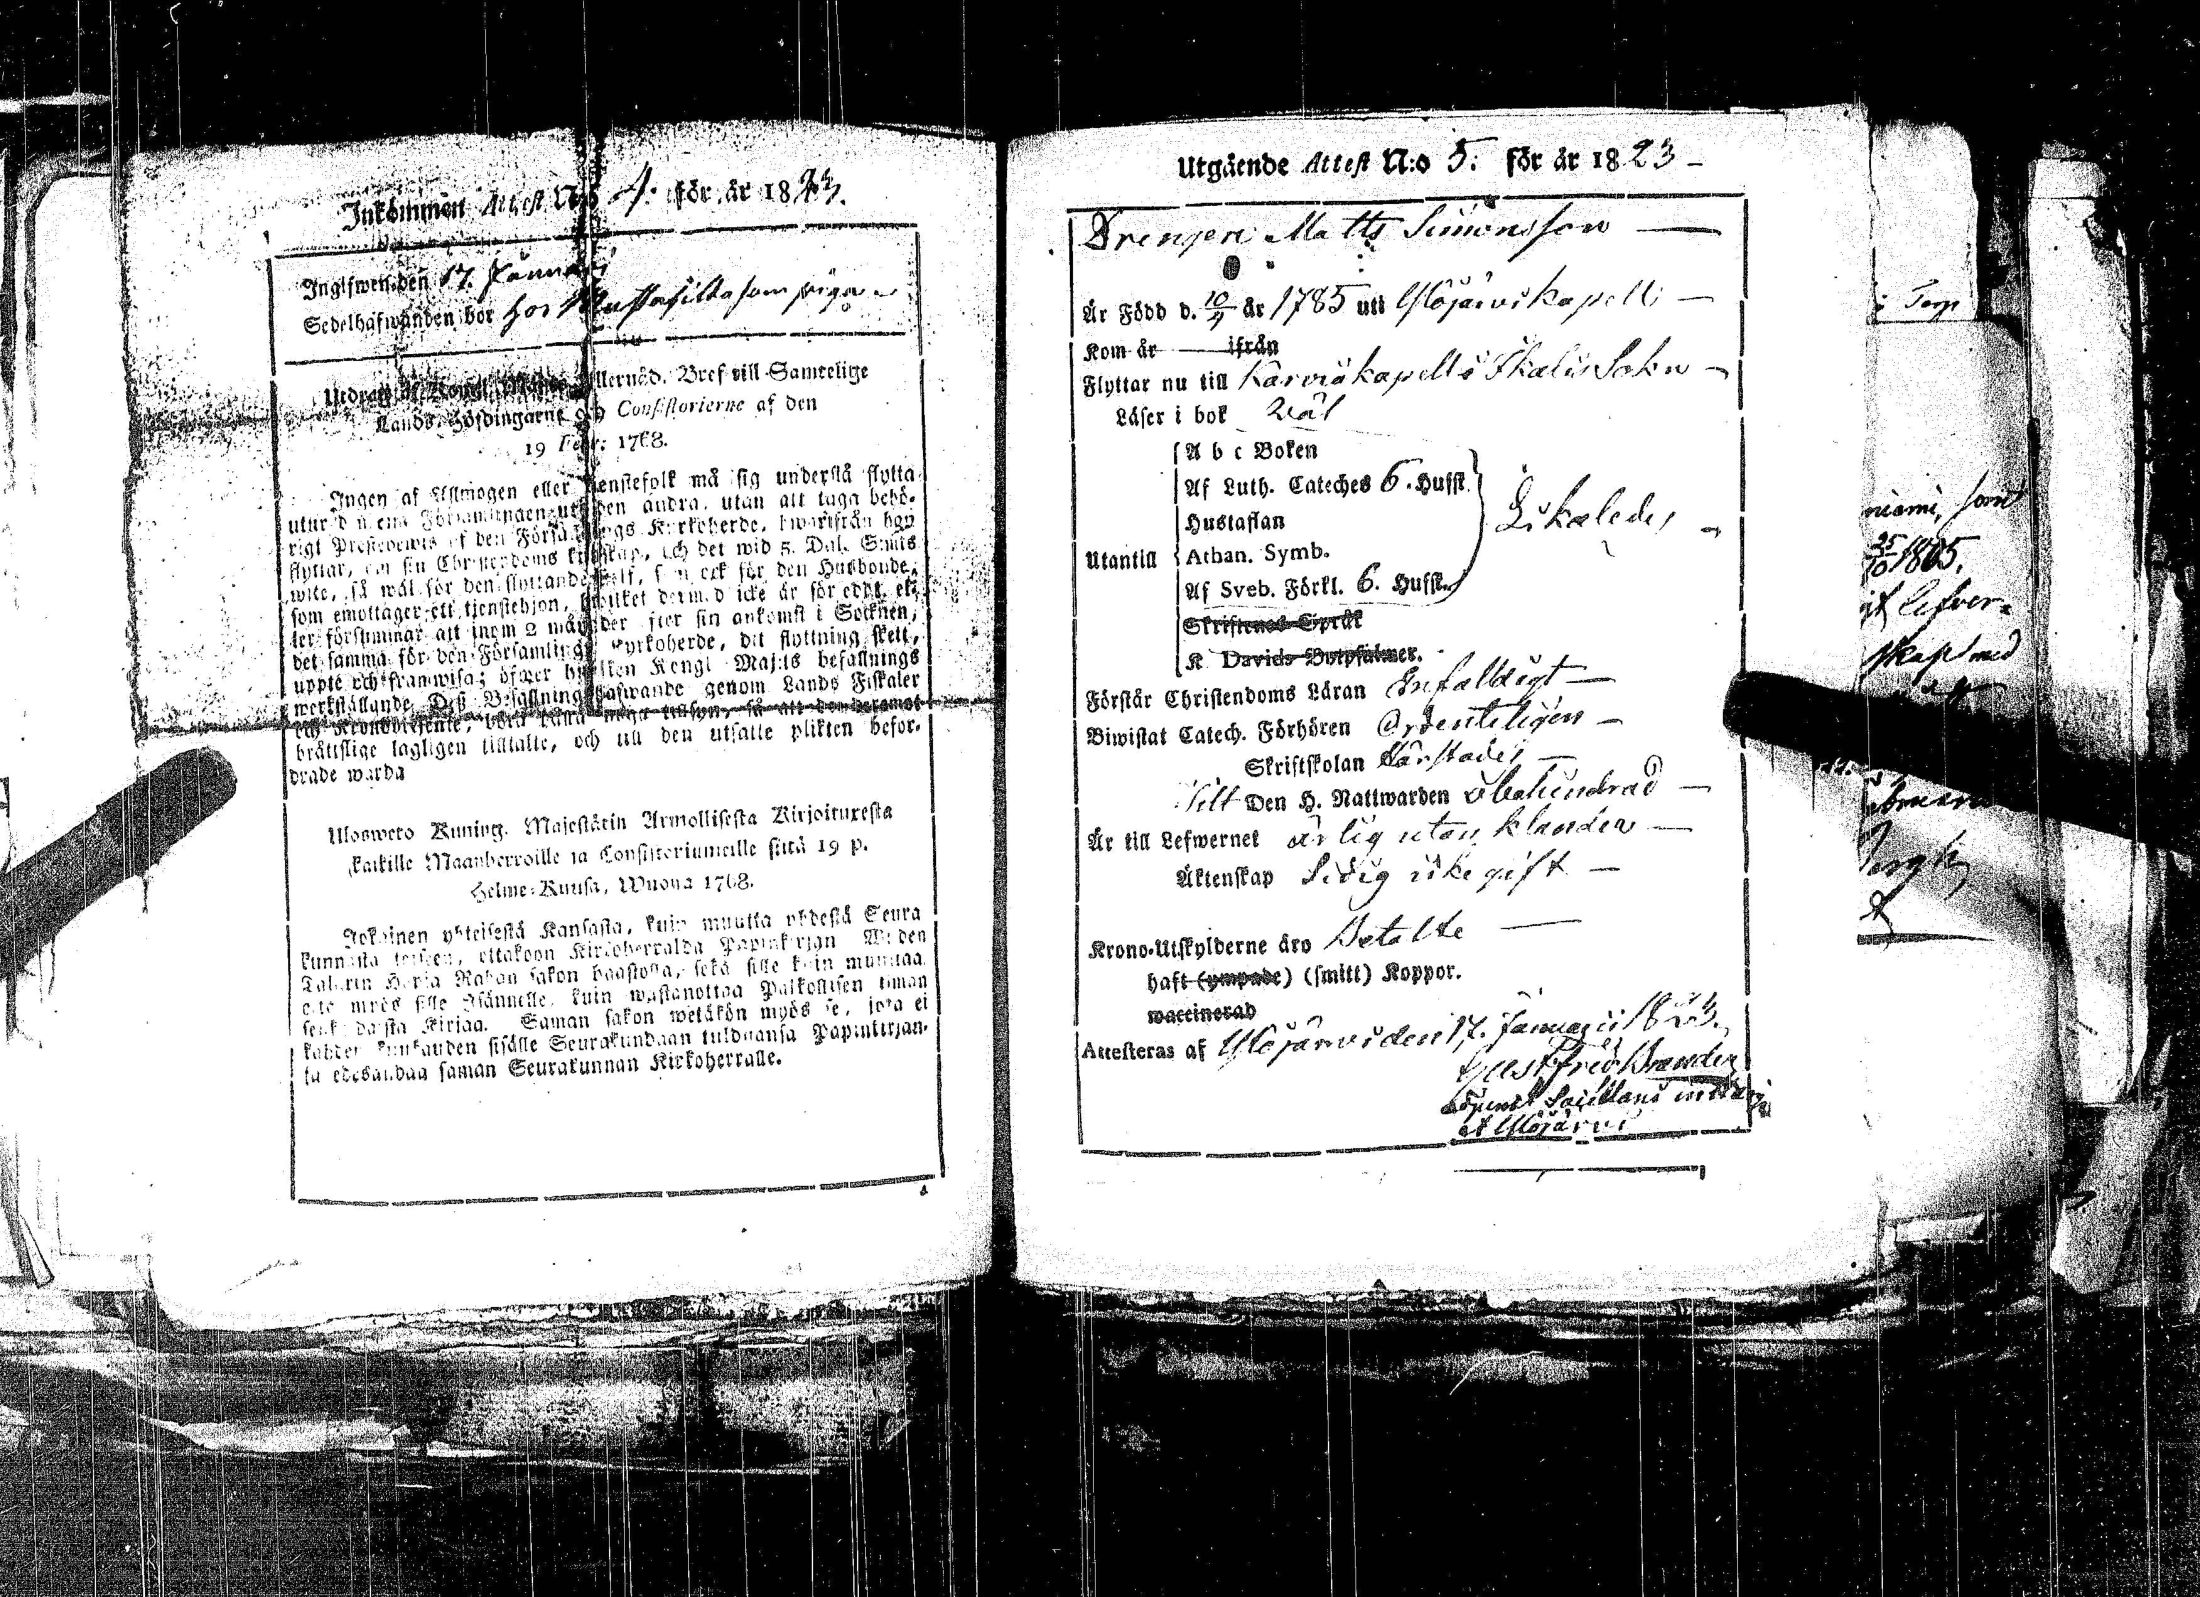 Inkommen Attest N:o 4. för år 1823.
Inglfwen den 17. Januarii
Sedelhafwanden bor hos
Utdrag af Kongl. Maj:ts Allernåd. Bref till Samtelige
Lands-Höfdingarne och Consistorierne af den
19 Febr: 1768.
Ingen af Allmogen eller Tjenstefolk må sig understå flytta
utur den ena Församlingen uti den andra, utan att taga behö-
rigt Prestebewis af den Församlings Kyrkoherde, hwarifrån han
flyttar, om sin Christendoms kunskap, och det wid 5. Dal. S:mts
wite, så wäl för den flyttande sjelf, som ock för den Husbonde,
som emottager ett tjenstehjon, hwilket dermed icke är försedt, el-
ler försummar att inom 2 månader efter sin ankomst i Socknen,
det samma för den Församlings Kyrkoherde, dit flyttning skett,
uppte och framwisa; öfwer hwilken Kongl Maj:ts befallnings
werkställande Deß Befallningshafwande genom Lands Fiskaler
och Kronobetjente, böra hålla noga tillsyn, så att den deremot
bråttslige lagligen tilltalte, och till den utsatte plikten befor-
drade warda
Ulosweto Kuning. Majestätin Armollisesta Kirjoituxesta
kaikille Maanherroille ja Consistoriumeille siitä 19 p.
Helme-Kuusa, Wuonna 1768.
Jokainen yhteisestä Kansasta, kuin muutta yhdestä Seura
kunnasta toiseen, ottakoon Kirkoherralda Papinkirjan Wiiden
Talarin Hopia Rahan sakon haastolla, sekä sille kuin muuttaa
että myös sille Isännelle, kuin wastanottaa Palkollisen ilman
senkaldaista Kirjaa. Saman sakon wetäkön myös se, joka ei
kahden kuukauden sisälle Seurakundaan tulduansa Papinkirjan-
sa edesandaa saman Seurakunnan Kirkoherralle.
Utgående Attest N:o 5. för år 1823 –
Drengen Matts Simonsson —
Är Född d. 10/9 år 1785 uti Ylöjärvi kapell –
Kom år — ifrån
Flyttar nu till Karvia kapell i Ikalis Sokn –
Läser i bok Wäl
A b c Boken
Af Luth. Cateches 6. Hufst.
Hustaflan
Utantill Athan. Symb.
Af Sveb. Förkl. 6. Hufst.
Likaledes –
Skriftenes Språk
K Davids Botpsalmer.
Förstår Christendoms Läran Enfaldigt –
Biwistat Catech. Förhören Ordenteligen –
Skriftskolan
Den H. Nattwarden obehindrad –
Är till Lefwernet ärlig utan klander –
Äktenskap Ledig icke gift –
Krono-Utskylderne äro Betalte —
haft (ympade) (smitt) Koppor.
waccinerad
Attesteras af Ylöjärvi den 17. Januarii 1823.
Gust Fred Brander
at Ylöjärvi
Torp
som
25/10 1865.
lefver-
skap med